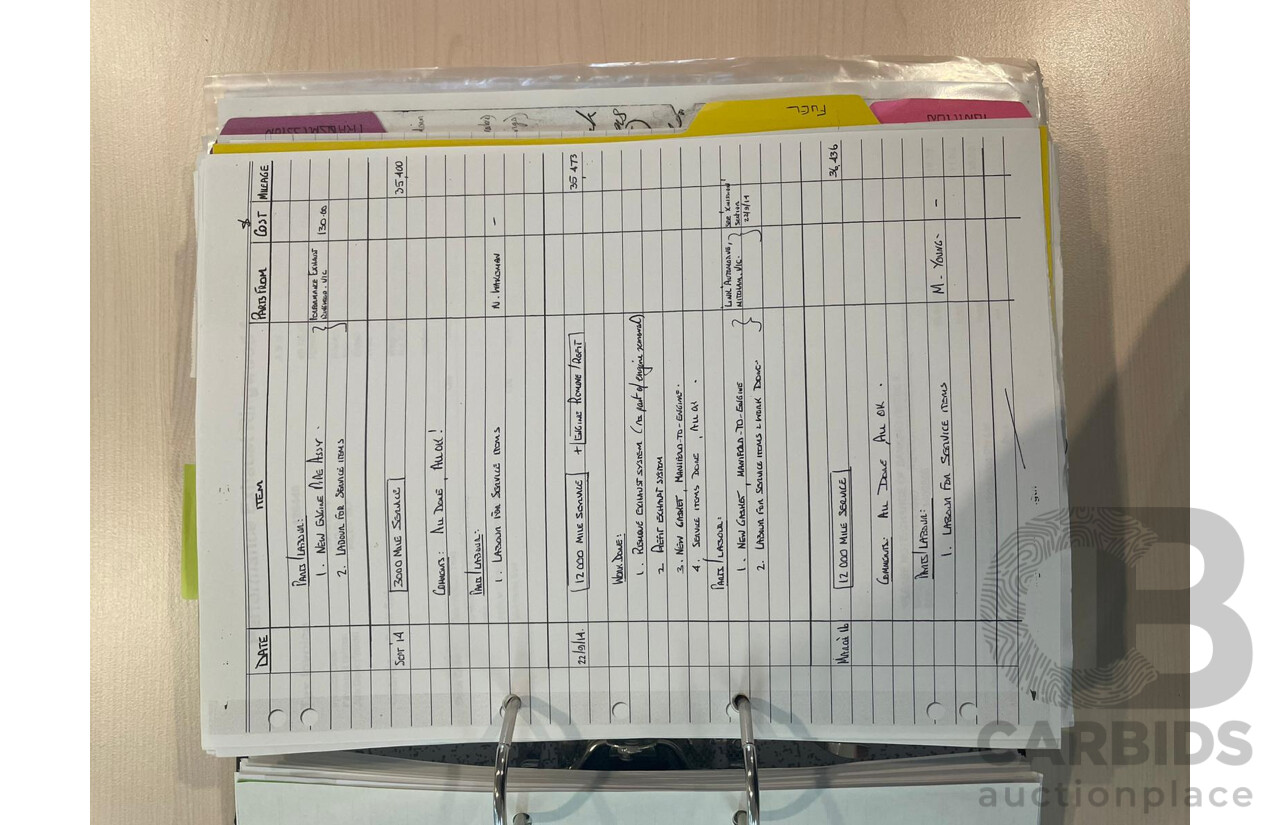 TRANSMISSION
FUEL
IGNITION
$
DATE ITEM PARTS FROM COST MILEAGE
PARTS/LABOUR:
1. NEW ENGINE PIPE ASSY.
PERFORMANCE EXHAUST
VIC
130-00
2. LABOUR FOR SERVICE ITEMS
SEPT '14 3000 MILE SERVICE 35,400
COMMENTS: ALL DONE, ALL OK!
PARTS/LABOUR:
1. LABOUR FOR SERVICE ITEMS N. HARDMAN -
22/9/14. 12 000 MILE SERVICE + ENGINE REMOVE/REFIT 35,473
WORK DONE:
1. REMOVE EXHAUST SYSTEM (As part of engine removal)
2. REFIT EXHAUST SYSTEM
3. NEW GASKET, MANIFOLD-TO-ENGINE.
4. SERVICE ITEMS DONE, ALL OK.
PARTS/LABOUR:
1. NEW GASKET, MANIFOLD-TO-ENGINE
2. LABOUR FOR SERVICE ITEMS & WORK DONE.
AUTOMOTIVE,
MITCHAM. VIC.
SEE
SECTION
22/9/14
MARCH 16 12 000 MILE SERVICE 36,436
COMMENTS: ALL DONE ALL OK.
PARTS/LABOUR:
1. LABOUR FOR SERVICE ITEMS M. YOUNG -
CARBIDS
auctionplace